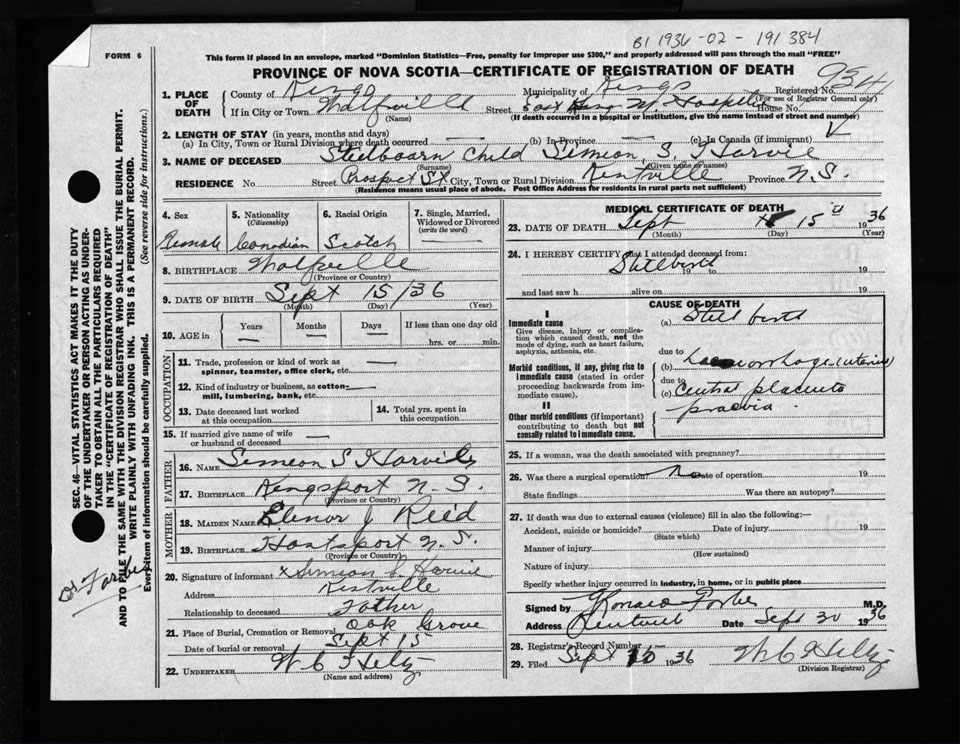 B1 1936-02-191384
FORM 6
This form if placed in an envelope, marked "Dominion Statistics—Free, penalty for improper use $300," and properly addressed will pass through the mail "FREE"
PROVINCE OF NOVA SCOTIA—CERTIFICATE OF REGISTRATION OF DEATH
1. PLACE OF DEATH County of Kings Municipality of Kings Registered No. 934
(For use of Registrar General only)
If in City or Town Wolfville Street House No.
(Name) (If death occurred in a hospital or institution, give the name instead of street and number)
2. LENGTH OF STAY (in years, months and days)
(a) In City, Town or Rural Division where death occurred — (b) In Province — (c) In Canada (if immigrant)
3. NAME OF DECEASED Child Simeon S. Harvie
(Surname) (Given name or names)
RESIDENCE No. Street Prospect St. City, Town or Rural Division Kentville Province N.S.
(Residence means usual place of abode. Post Office Address for residents in rural parts not sufficient)
4. Sex Female
5. Nationality (Citizenship) Canadian
6. Racial Origin Scotch
7. Single, Married, Widowed or Divorced (write the word) —
8. BIRTHPLACE Wolfville
(Province or Country)
9. DATE OF BIRTH Sept 15/36
(Month) (Day) (Year)
10. AGE in Years Months Days If less than one day old
hrs. or min.
OCCUPATION
11. Trade, profession or kind of work as —
spinner, teamster, office clerk, etc.
12. Kind of industry or business, as cotton-
mill, lumbering, bank, etc.
13. Date deceased last worked
at this occupation
14. Total yrs. spent in
this occupation
15. If married give name of wife
or husband of deceased —
FATHER
16. NAME Simeon S Harvie
17. BIRTHPLACE Kingsport N.S.
(Province or Country)
MOTHER
18. MAIDEN NAME Elenor J. Reid
19. BIRTHPLACE Hantsport N.S.
(Province or Country)
20. Signature of informant x Simeon S. Harvie
Address Kentville
Relationship to deceased Father
21. Place of Burial, Cremation or Removal Oak Grove
Date of burial or removal Sept 15
22. UNDERTAKER W C Hiltz
(Name and address)
MEDICAL CERTIFICATE OF DEATH
23. DATE OF DEATH Sept 15 1936
(Month) (Day) (Year)
24. I HEREBY CERTIFY that I attended deceased from:
Stillbirth to 19
and last saw h alive on 19
CAUSE OF DEATH
I
Immediate cause (a) Still birth
Give disease, injury or complica-
tion which caused death, not the
mode of dying, such as heart failure,
asphyxia, asthenia, etc. due to
Morbid conditions, if any, giving rise to (b) haemorrhage (uterine)
immediate cause (stated in order due to
proceeding backwards from im- (c) Central placenta
mediate cause). praevia
II
Other morbid conditions (if important)
contributing to death but not
causally related to immediate cause.
25. If a woman, was the death associated with pregnancy?
26. Was there a surgical operation? no Date of operation 19
State findings Was there an autopsy?
27. If death was due to external causes (violence) fill in also the following:—
Accident, suicide or homicide? Date of injury 19
(State which)
Manner of injury
(How sustained)
Nature of injury
Specify whether injury occurred in industry, in home, or in public place
Signed by Forbes M.D.
Address Kentville Date Sept 30 1936
28. Registrar's Record Number —
29. Filed Sept 1936 W C Hiltz
(Division Registrar)
SEC. 46—VITAL STATISTICS ACT MAKES IT THE DUTY
OF THE UNDERTAKER OR PERSON ACTING AS UNDER-
TAKER TO OBTAIN ALL THE PARTICULARS REQUIRED
IN THE "CERTIFICATE OF REGISTRATION OF DEATH"
AND TO FILE THE SAME WITH THE DIVISION REGISTRAR WHO SHALL ISSUE THE BURIAL PERMIT.
WRITE PLAINLY WITH UNFADING INK. THIS IS A PERMANENT RECORD.
Every item of information should be carefully supplied. (See reverse side for instructions.)
Dr Forbes